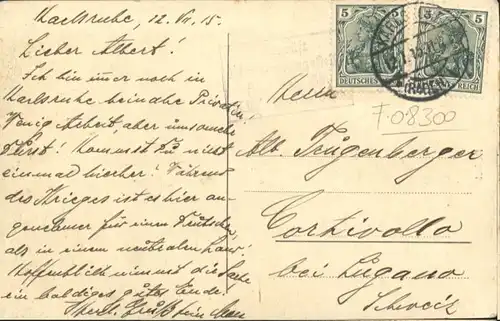 Karlsruhe, 12. VI. 15.
Lieber Albert!
Ich bin immer noch in
Karlsruhe beinahe Privatier.
Wenig Arbeit, aber umsomehr
Durst! Kommst Du nicht
einmal hierher! Während
des Krieges ist es hier an-
genehmer für einen Deutschen
als in einem neutralen Land!
Hoffentlich nimmt die Sache
ein baldiges gutes Ende.
Herzl. Gruß Dein
5 5 5
DEUTSCHES REICH
(BADEN)
Herrn
F.08300
Alb. Trügenberger
Cortivallo
bei Lugano
Schweiz